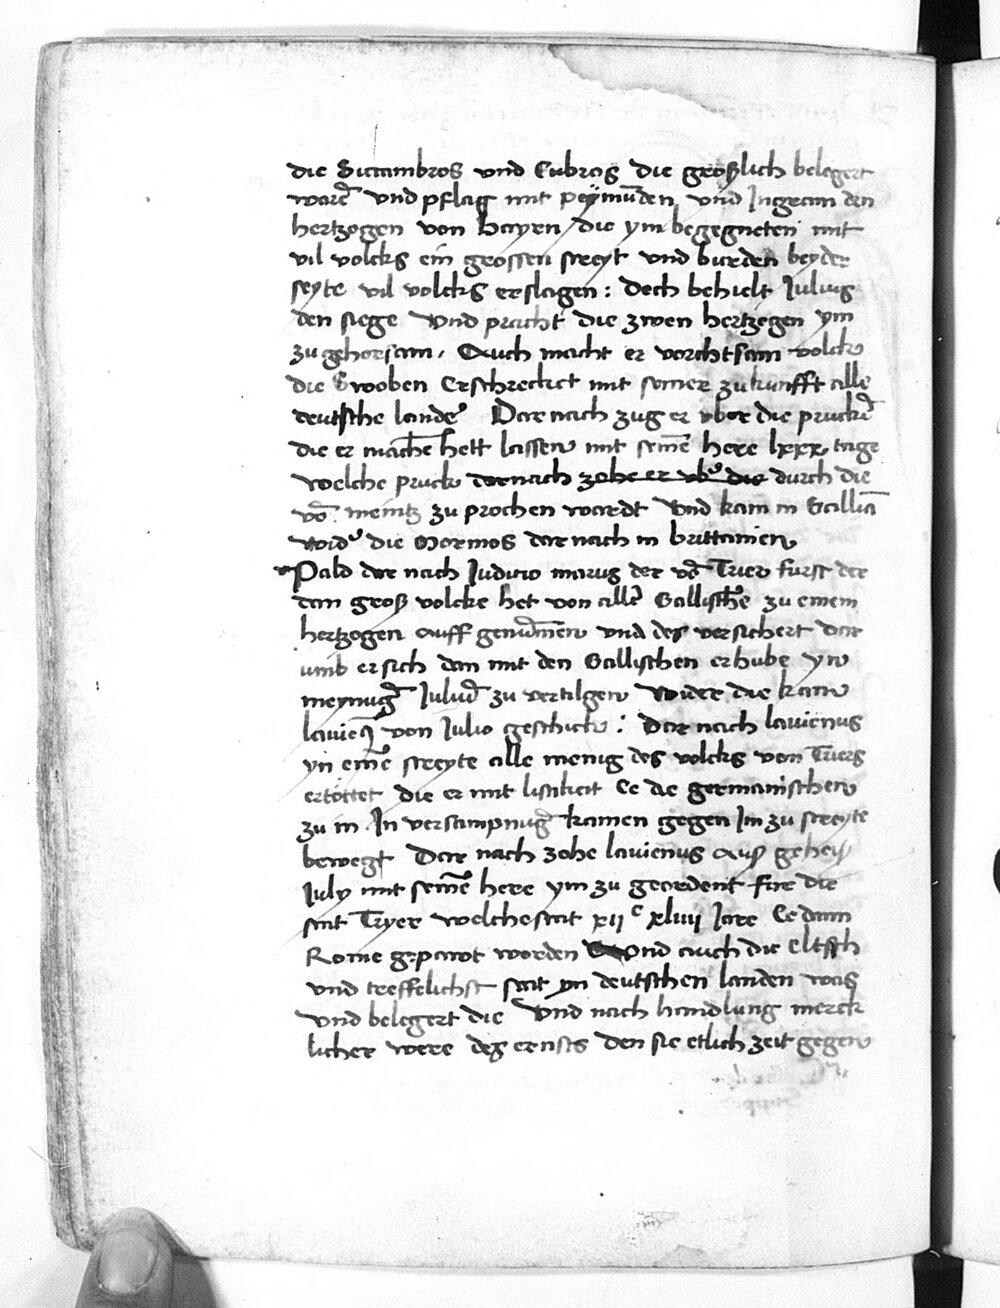 die Sicambros vnd Cubros die größlich belegert
warē vnd pflag mit peymūden vnd Ingram den
hertzogen von Bayren die ym begegneten mit
vil volcks ein grossen streyt vnd burden beyder
seyte vil volcks erslagen : Doch behielt Julius
den siege vnd pracht die zwen hertzogen ym
zu gehorsam . Auch macht er vorchtsam volck
die Swoben Erschrecket mit seiner zukunfft alle
deutsche lande Dar nach zug er vber die pruckē
die er machē hett lassen mit seinē here lxxx tage
welche pruck darnach zohe er vbʼ die durch die
vō meintz zu prochen wardt vnd kam in Galliā
widʼ die Mormos dar nach in brittanien
Pald dar nach Juducio marus der vō Trier furst der
dan groß volcke het von allē Gallischē zu einem
hertzogen auff genūmen vnd des versichert Dar
umb er sich dan mit den Gallischen erhube yn
meynūg Juliū zu vertilgen wider die kam
lavienꝰ von Julio geschickt : Dar nach lavienus
yn einē streyte alle menig des volcks von Triers
ertöttet die er mit listikeit Ee die germanischen
zu in In versampnūg kamen gegen Im zu streyte
bewegt Dar nach zohe lavienus auß geheiß
July mit seinē here ym zu geordent fur die
stat Tryer welche stat xii c xliiii Jare Ee dann
Rome gepawt worden vnd auch die eltsth
vnd treffelichst stat yn deutschen landen was
vnd belegert die vnd nach handlung merck
licher were des ernsts den sie etlich zeit gegen